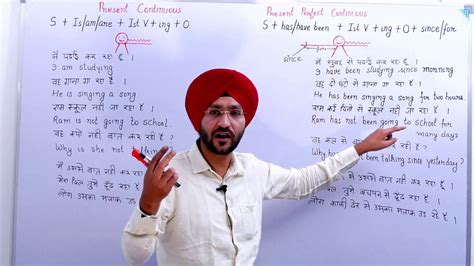 Present Continuous
S + Is/am/are + Ist V + ing + O
मैं पढ़ाई कर रहा हूँ ।
I am studying
वह गाना गा रहा है ।
He is singing a song
राम स्कूल नहीं जा रहा है ।
Ram is not going to school
वह क्यों नहीं बात कर रही है ?
Why is she not
मैं उससे बात नहीं कर रहा हूँ
मेरा दिल तुझे ढूँढ रहा है ।
लोग उसका मजाक
Present Perfect Continuous
S + has/have been + Ist V + ing + O + since/for
since
मैं सुबह से पढ़ाई कर रहा हूँ ।
I have been studying since morning
वह दो घंटे से गाना गा रहा है ।
He has been singing a song for two hours.
राम कई दिनों से स्कूल नहीं जा रहा है ।
Ram has not been going to school for
many days
वह कल से बात
been talking since yesterday?
से उससे बात नहीं कर रहा हूँ ।
तुझे बचपन से ढूँढ रहा है ।
लोग काफी देर से उसका मजाक उड़ा रहे हैं ।